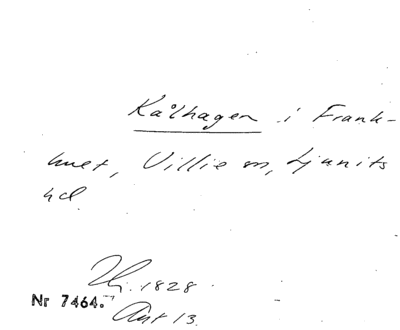 Kålhagen i Frank-
huet, Villie sn, Ljunits
hd.
1828.
Nr 7464.
Akt 13.